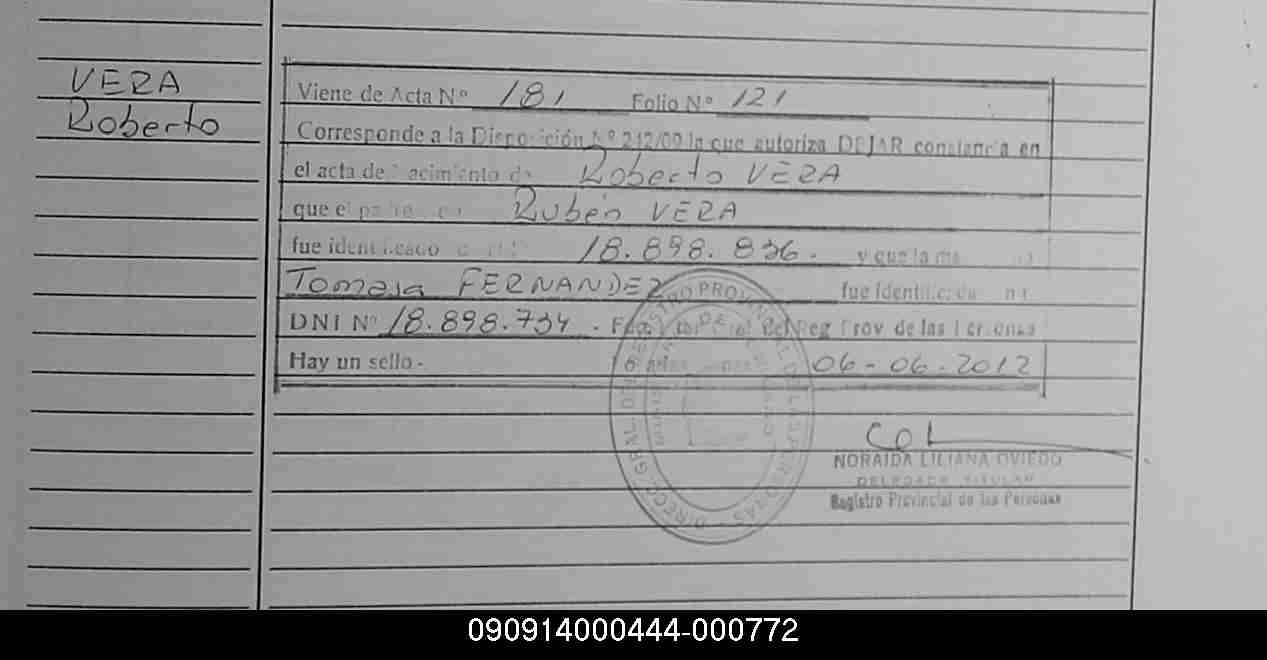 VERA
Roberto
Viene de Acta Nº 181 Folio Nº 121
Corresponde a la Disposición Nº 212/09 la que autoriza DEJAR constancia en
el acta de nacimiento de Roberto VERA
que el padre Rubén VERA
fue identificado 18.898.836. y que la
Tomasa FERNANDEZ fue identificada
DNI Nº 18.898.734. del Reg Prov. de las Personas
Hay un sello - 06-06-2012
DIRECC. GRAL. DEL REGISTRO PROVINCIAL DE LAS PERSONAS
NORAIDA LILIANA OVIEDO
DELEGADA TITULAR
Registro Provincial de las Personas
090914000444-000772